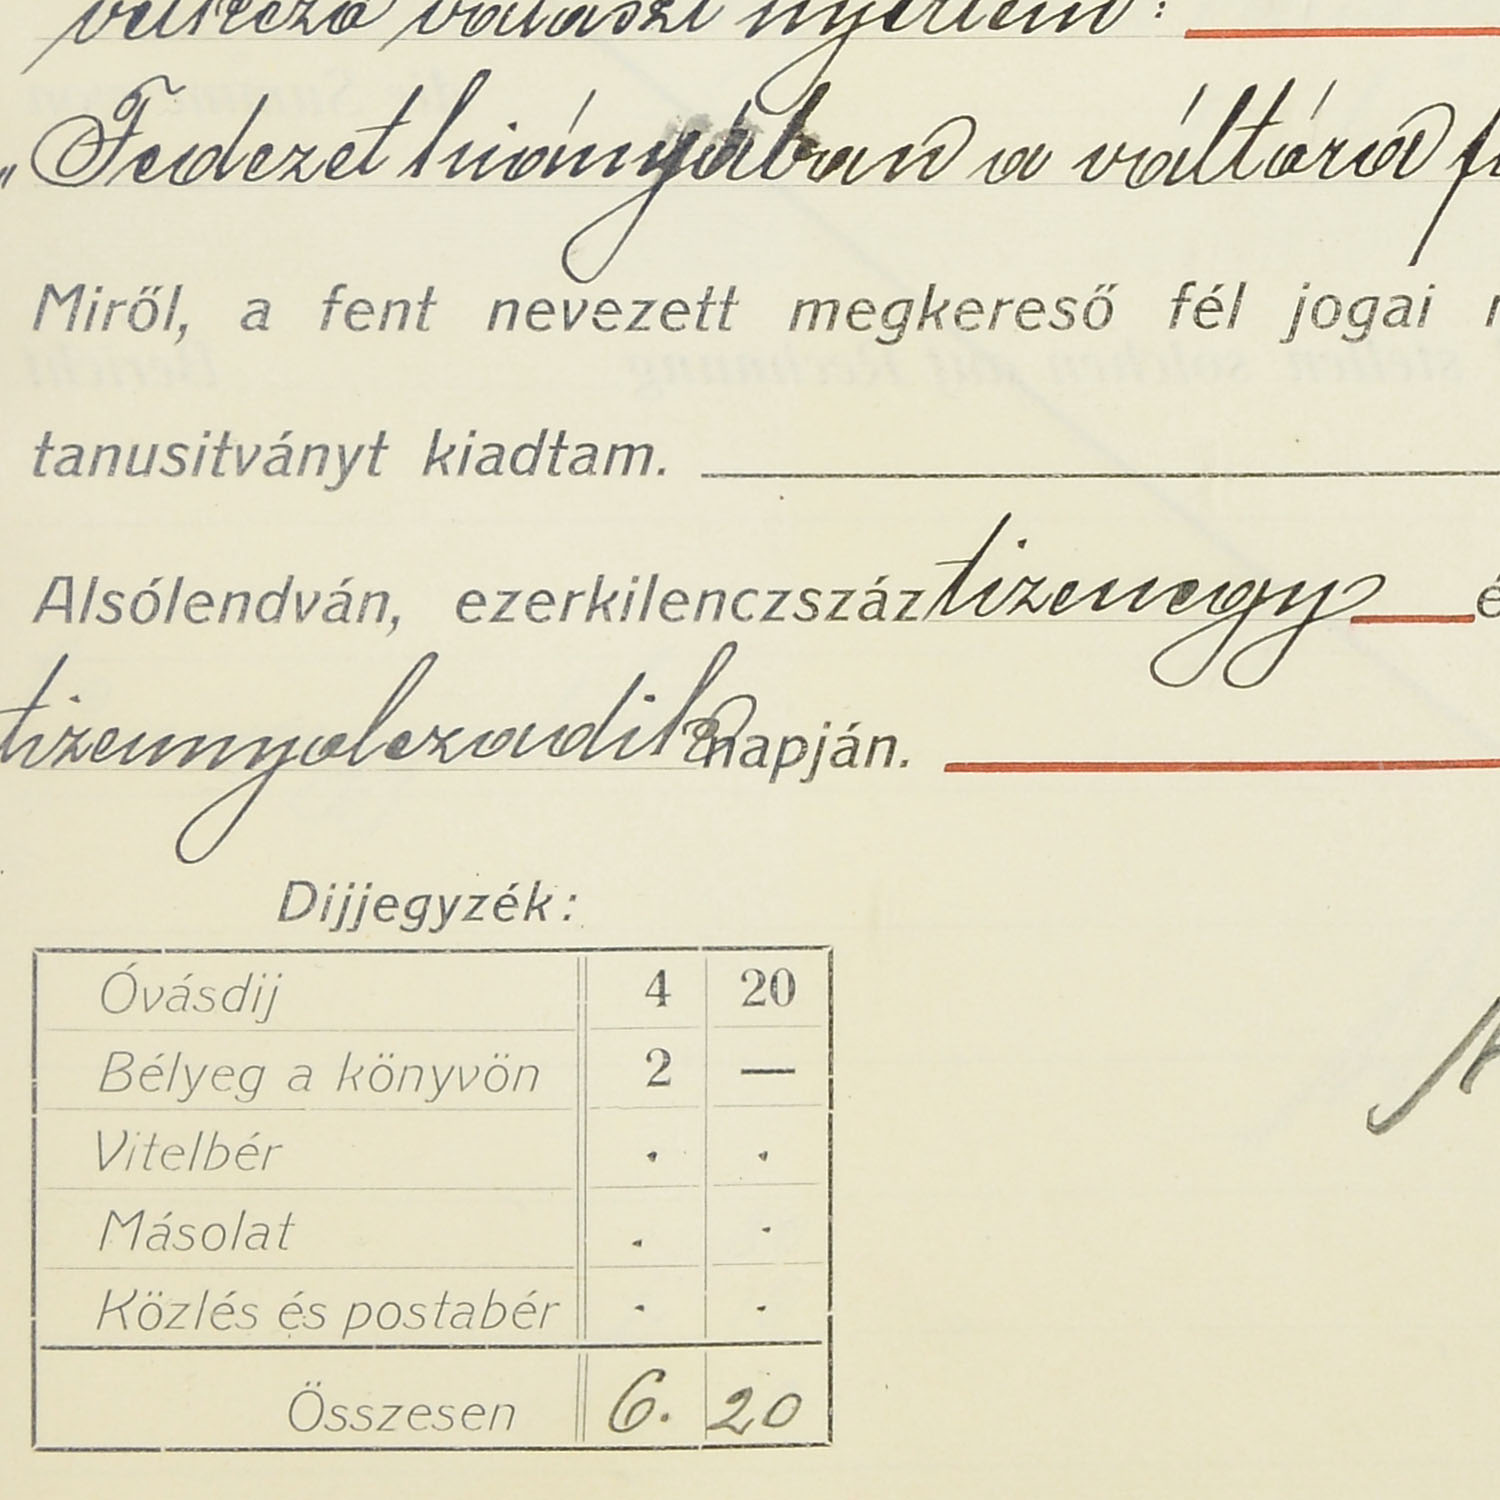 választ nyertem:
„Fedezet hiányában a váltóra
Miről, a fent nevezett megkereső fél jogai
tanusitványt kiadtam.
Alsólendván, ezerkilenczszáz tizenegy
tizennyolczadik napján.
Dijjegyzék:
Óvásdij 4 20
Bélyeg a könyvön 2 —
Vitelbér . .
Másolat . .
Közlés és postabér . .
Összesen 6. 20